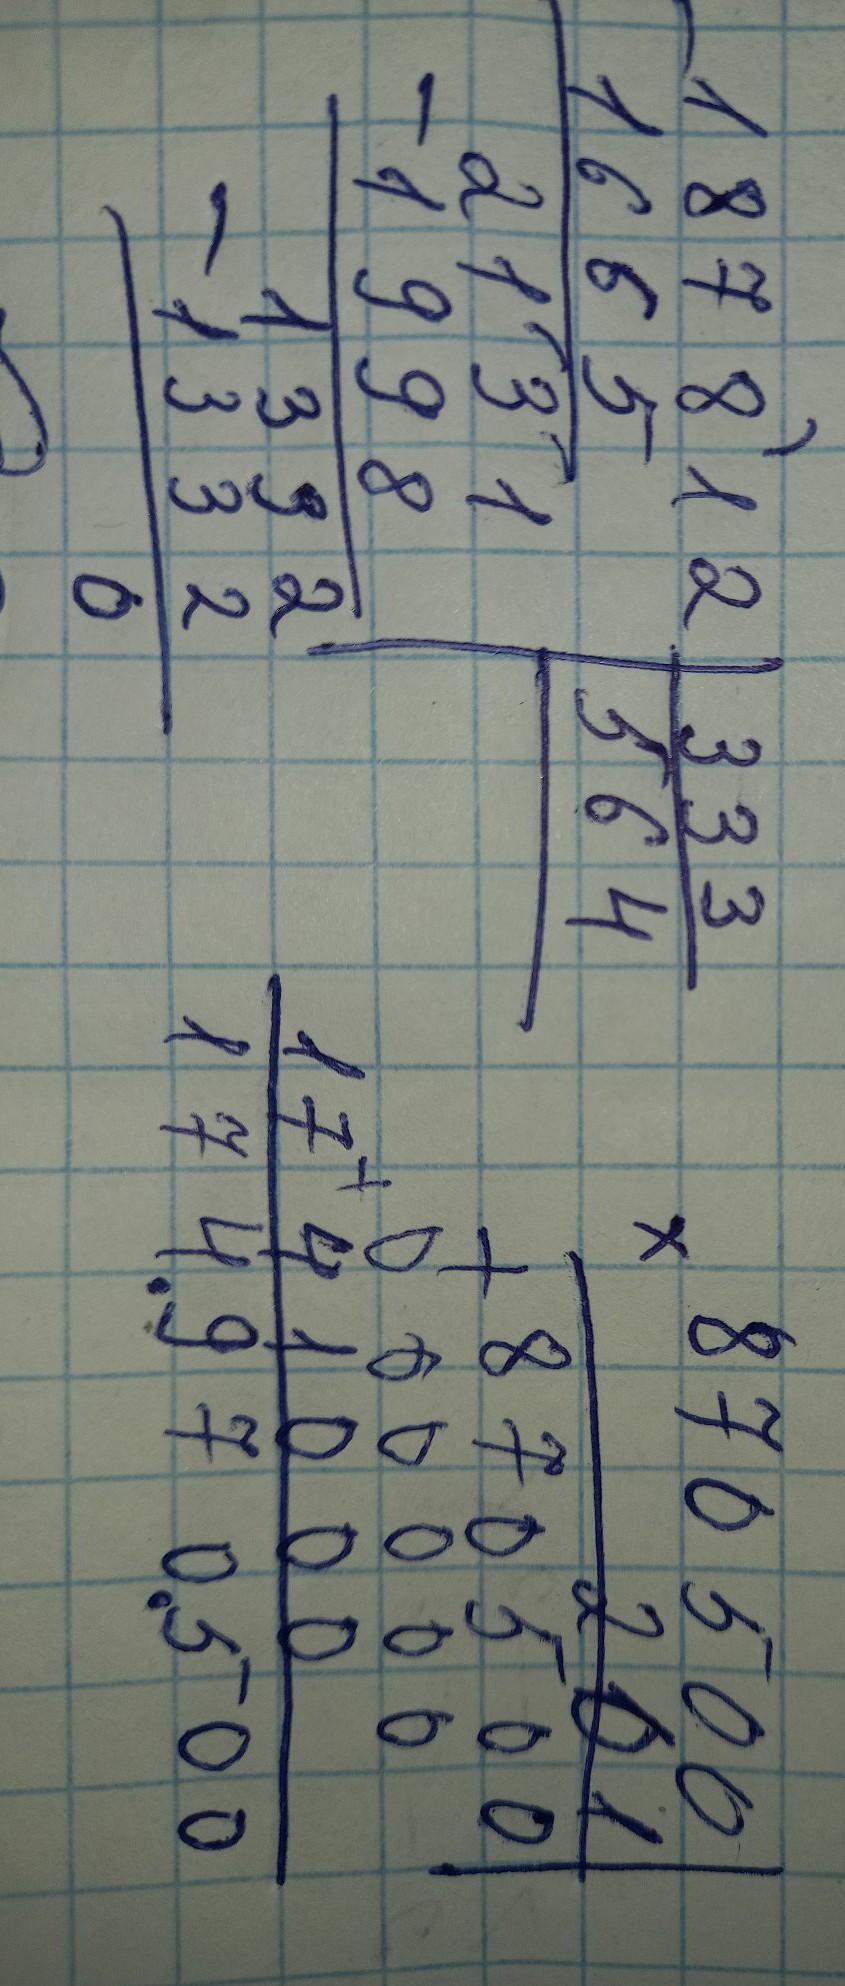 187812 | 333
1665 | 564
2131
- 1998
1332
- 1332
0
× 870500
201
+ 870500
+ 000000
1741000
174.970.500